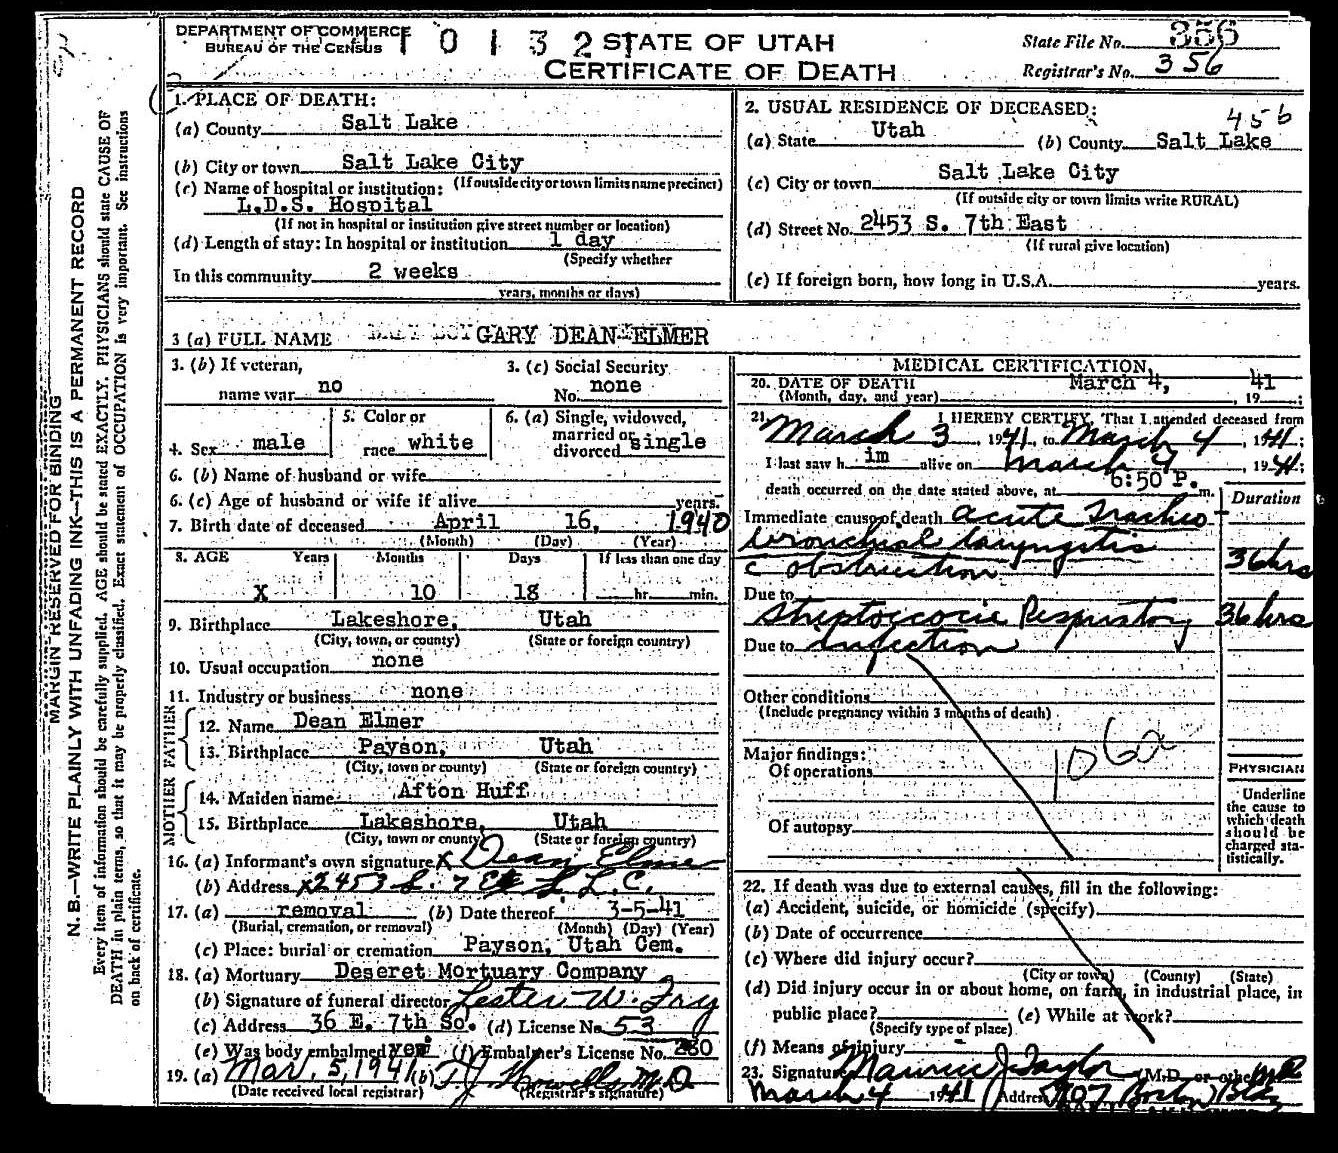 DEPARTMENT OF COMMERCE
BUREAU OF THE CENSUS
1 0 1 3 2 1
STATE OF UTAH
CERTIFICATE OF DEATH
State File No. 356
Registrar's No. 356
1. PLACE OF DEATH:
(a) County Salt Lake
(b) City or town Salt Lake City
(If outside city or town limits name precinct)
(c) Name of hospital or institution:
L.D.S. Hospital
(If not in hospital or institution give street number or location)
(d) Length of stay: In hospital or institution 1 day
(Specify whether
In this community 2 weeks
years, months or days)
2. USUAL RESIDENCE OF DECEASED:
456
(a) State Utah (b) County Salt Lake
(c) City or town Salt Lake City
(If outside city or town limits write RURAL)
(d) Street No. 2453 S. 7th East
(If rural give location)
(e) If foreign born, how long in U.S.A. years.
3 (a) FULL NAME GARY DEAN ELMER
3. (b) If veteran,
name war no
3. (c) Social Security
No. none
4. Sex male
5. Color or
race white
6. (a) Single, widowed,
married or
divorced single
6. (b) Name of husband or wife
6. (c) Age of husband or wife if alive years.
7. Birth date of deceased April 16, 1940
(Month) (Day) (Year)
8. AGE Years Months Days If less than one day
X 10 18 hr. min.
9. Birthplace Lakeshore, Utah
(City, town, or county) (State or foreign country)
10. Usual occupation none
11. Industry or business none
FATHER
12. Name Dean Elmer
13. Birthplace Payson, Utah
(City, town or county) (State or foreign country)
MOTHER
14. Maiden name Afton Huff
15. Birthplace Lakeshore, Utah
(City, town or county) (State or foreign country)
16. (a) Informant's own signature X Dean Elmer
(b) Address x2453 S. 7 E S. L. C.
17. (a) removal (b) Date thereof 3-5-41
(Burial, cremation, or removal) (Month) (Day) (Year)
(c) Place: burial or cremation Payson, Utah Cem.
18. (a) Mortuary Deseret Mortuary Company
(b) Signature of funeral director Lester W.
(c) Address 36 E. 7th So. (d) License No. 53
(e) Was body embalmed yes (f) Embalmer's License No. 230
19. (a) Mar. 5, 1941 (b) T J Howells M.D
(Date received local registrar) (Registrar's signature)
MEDICAL CERTIFICATION
20. DATE OF DEATH March 4, 41
(Month, day, and year) , 19 ;
21. I HEREBY CERTIFY, That I attended deceased from
March 3, 1941, to March 4, 1941;
I last saw him alive on March 4, 1941;
death occurred on the date stated above, at 6:50 P. m.
Duration
Immediate cause of death acute tracheo
bronchial laryngitis
c obstruction 36hrs
Due to
Streptococcic Respiratory 36hrs
Due to infection
Other conditions
(Include pregnancy within 3 months of death)
106a
Major findings:
Of operations
Of autopsy
PHYSICIAN
Underline
the cause to
which death
should be
charged sta-
tistically.
22. If death was due to external causes, fill in the following:
(a) Accident, suicide, or homicide (specify)
(b) Date of occurrence
(c) Where did injury occur?
(City or town) (County) (State)
(d) Did injury occur in or about home, on farm, in industrial place, in
public place? (e) While at work?
(Specify type of place)
(f) Means of injury
23. Signature Maurice J. Taylor (M.D. or other MD
March 4 1941 Address Boston Bldg
MARGIN RESERVED FOR BINDING
N. B.—WRITE PLAINLY WITH UNFADING INK—THIS IS A PERMANENT RECORD
Every item of information should be carefully supplied. AGE should be stated EXACTLY. PHYSICIANS should state CAUSE OF
DEATH in plain terms, so that it may be properly classified. Exact statement of OCCUPATION is very important. See instructions
on back of certificate.